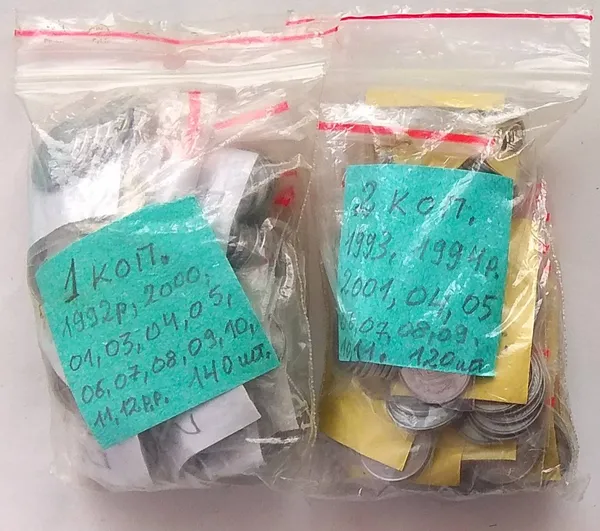 1 коп.
1992р, 2000,
01, 03, 04, 05,
06, 07, 08, 09, 10,
11, 12р.р. 140 шт.
2 коп.
1993, 1994р,
2001, 04, 05
06, 07, 08, 09,
10, 11. 120 шт